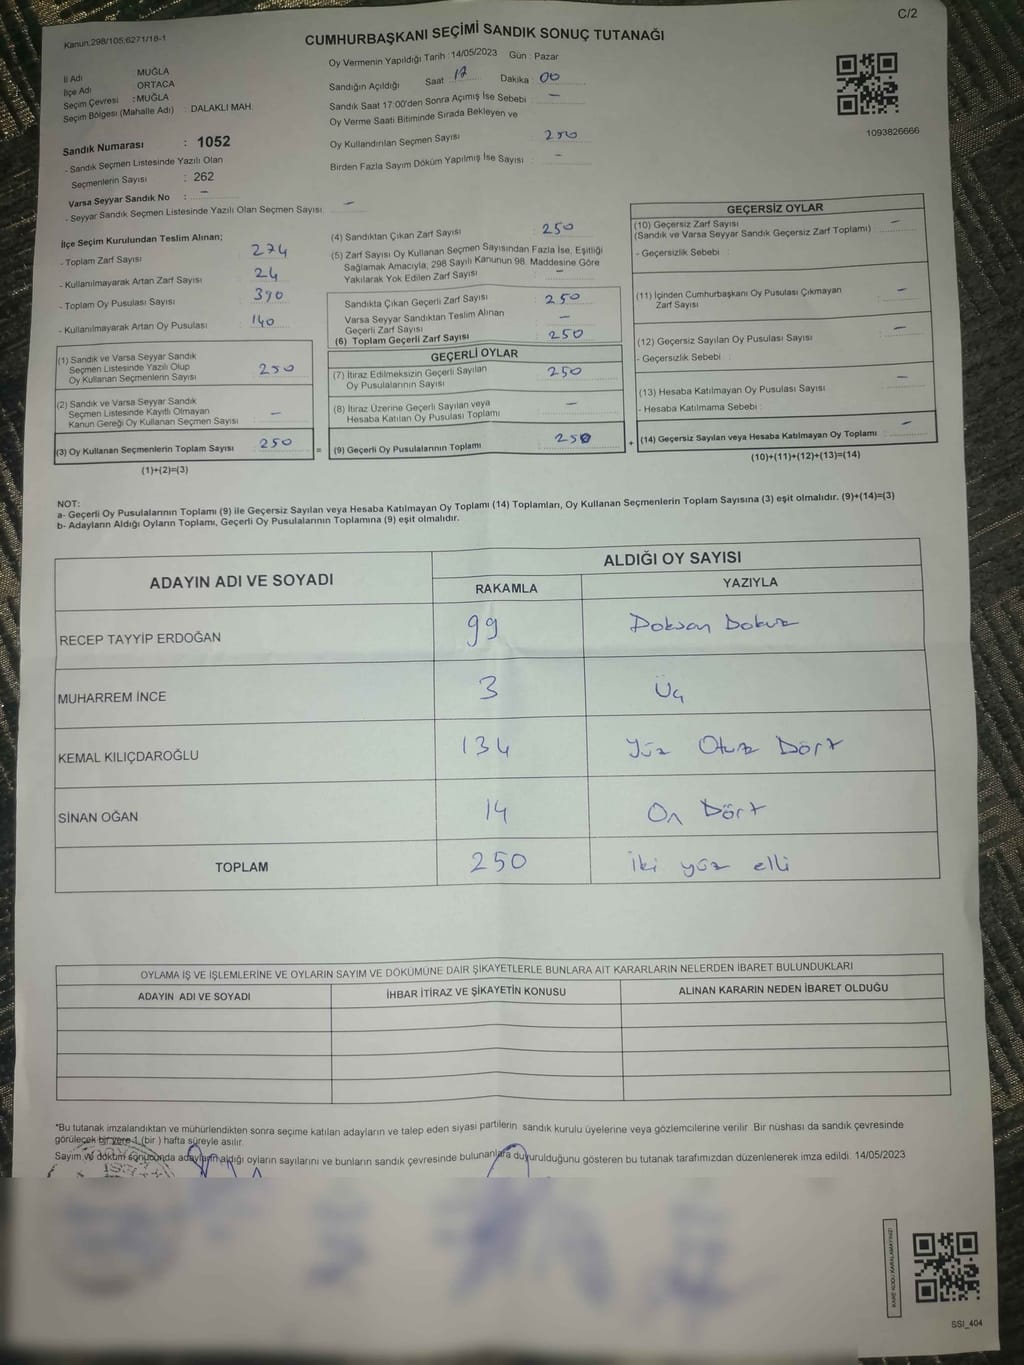 C/2
Kanun.298/105;6271/18-1
CUMHURBAŞKANI SEÇİMİ SANDIK SONUÇ TUTANAĞI
Oy Vermenin Yapıldığı Tarih : 14/05/2023 Gün : Pazar
İl Adı MUĞLA
İlçe Adı ORTACA
Seçim Çevresi : MUĞLA
Seçim Bölgesi (Mahalle Adı) : DALAKLI MAH.
Sandığın Açıldığı Saat 17 Dakika : 00
Sandık Saat 17:00'den Sonra Açımış İse Sebebi : -
Oy Verme Saati Bitiminde Sırada Bekleyen ve
Oy Kullandırılan Seçmen Sayısı : 250
Birden Fazla Sayım Döküm Yapılmış İse Sayısı : -
1093826666
Sandık Numarası : 1052
- Sandık Seçmen Listesinde Yazılı Olan
Seçmenlerin Sayısı : 262
Varsa Seyyar Sandık No : -
- Seyyar Sandık Seçmen Listesinde Yazılı Olan Seçmen Sayısı: -
İlçe Seçim Kurulundan Teslim Alınan;
- Toplam Zarf Sayısı 274
- Kullanılmayarak Artan Zarf Sayısı 24
- Toplam Oy Pusulası Sayısı 390
- Kullanılmayarak Artan Oy Pusulası 140
(1) Sandık ve Varsa Seyyar Sandık
Seçmen Listesinde Yazılı Olup
Oy Kullanan Seçmenlerin Sayısı 250
(2) Sandık ve Varsa Seyyar Sandık
Seçmen Listesinde Kayıtlı Olmayan
Kanun Gereği Oy Kullanan Seçmen Sayısı -
(3) Oy Kullanan Seçmenlerin Toplam Sayısı 250
(1)+(2)=(3)
=
(4) Sandıktan Çıkan Zarf Sayısı : 250
(5) Zarf Sayısı Oy Kullanan Seçmen Sayısından Fazla İse, Eşitliği
Sağlamak Amacıyla, 298 Sayılı Kanunun 98. Maddesine Göre
Yakılarak Yok Edilen Zarf Sayısı : -
Sandıkta Çıkan Geçerli Zarf Sayısı : 250
Varsa Seyyar Sandıktan Teslim Alınan
Geçerli Zarf Sayısı : -
(6) Toplam Geçerli Zarf Sayısı : 250
GEÇERLİ OYLAR
(7) İtiraz Edilmeksizin Geçerli Sayılan
Oy Pusulalarının Sayısı : 250
(8) İtiraz Üzerine Geçerli Sayılan veya
Hesaba Katılan Oy Pusulası Toplamı : -
(9) Geçerli Oy Pusulalarının Toplamı : 250
+
GEÇERSİZ OYLAR
(10) Geçersiz Zarf Sayısı
(Sandık ve Varsa Seyyar Sandık Geçersiz Zarf Toplamı) : -
- Geçersizlik Sebebi :
(11) İçinden Cumhurbaşkanı Oy Pusulası Çıkmayan
Zarf Sayısı : -
(12) Geçersiz Sayılan Oy Pusulası Sayısı : -
- Geçersizlik Sebebi :
(13) Hesaba Katılmayan Oy Pusulası Sayısı : -
- Hesaba Katılmama Sebebi :
(14) Geçersiz Sayılan veya Hesaba Katılmayan Oy Toplamı : -
(10)+(11)+(12)+(13)=(14)
NOT:
a- Geçerli Oy Pusulalarının Toplamı (9) ile Geçersiz Sayılan veya Hesaba Katılmayan Oy Toplamı (14) Toplamları, Oy Kullanan Seçmenlerin Toplam Sayısına (3) eşit olmalıdır. (9)+(14)=(3)
b- Adayların Aldığı Oyların Toplamı, Geçerli Oy Pusulalarının Toplamına (9) eşit olmalıdır.
ADAYIN ADI VE SOYADI ALDIĞI OY SAYISI
RAKAMLA YAZIYLA
RECEP TAYYİP ERDOĞAN 99 Doksan Dokuz
MUHARREM İNCE 3 Üç
KEMAL KILIÇDAROĞLU 134 Yüz Otuz Dört
SİNAN OĞAN 14 On Dört
TOPLAM 250 iki yüz elli
OYLAMA İŞ VE İŞLEMLERİNE VE OYLARIN SAYIM VE DÖKÜMÜNE DAİR ŞİKAYETLERLE BUNLARA AİT KARARLARIN NELERDEN İBARET BULUNDUKLARI
ADAYIN ADI VE SOYADI İHBAR İTİRAZ VE ŞİKAYETİN KONUSU ALINAN KARARIN NEDEN İBARET OLDUĞU
*Bu tutanak imzalandıktan ve mühürlendikten sonra seçime katılan adayların ve talep eden siyasi partilerin sandık kurulu üyelerine veya gözlemcilerine verilir. Bir nüshası da sandık çevresinde
görülecek bir yere 1 (bir ) hafta süreyle asılır.
Sayım ve döküm sonucunda adayların aldığı oyların sayılarını ve bunların sandık çevresinde bulunanlara duyurulduğunu gösteren bu tutanak tarafımızdan düzenlenerek imza edildi. 14/05/2023
KARE KODU KARALAMAYINIZ!
SSI_404